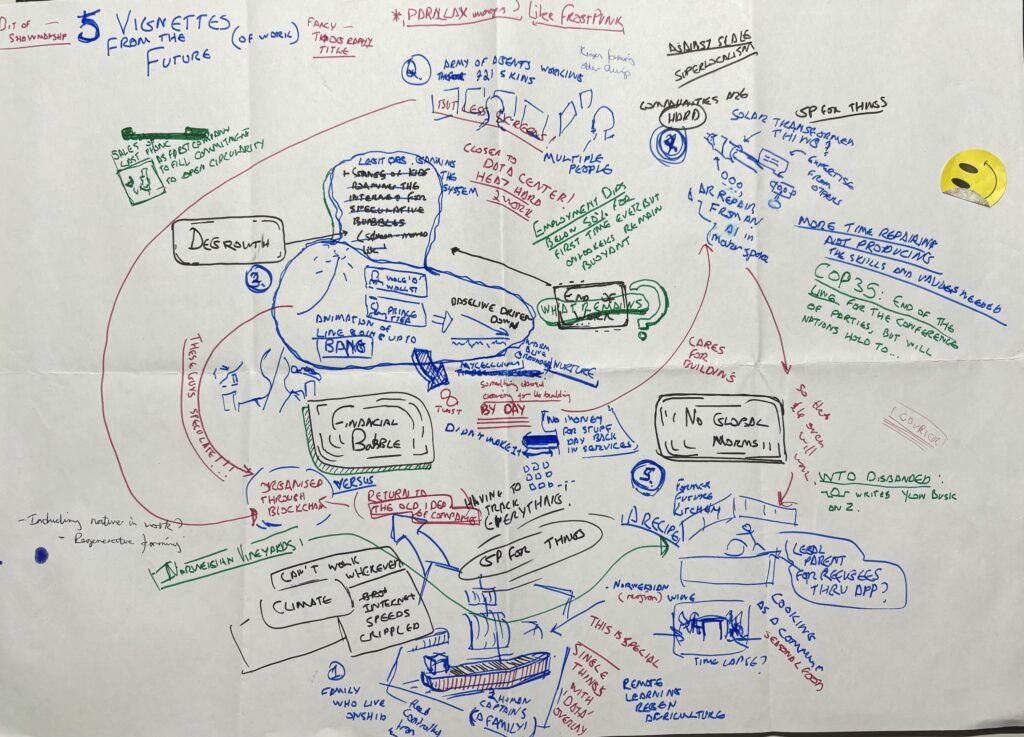 BIT OF —
SHOWMANSHIP
5 VIGNETTES
FROM THE
FUTURE
(OF WORK)
FANCY —
TYPOGRAPHY
TITLE
*, PARALLAX images? Like FROSTPUNK
AGAINST SCALE
SUPERLOCALISM
2.
ARMY OF AGENTS WORKING
721 SKINS
BUT LESS SCREENS!
MULTIPLE
PEOPLE
CLOSER TO
DATA CENTER!
HEAT HARD
2 WORK
COMMUNITIES ARE
HARD
4.
GP FOR THINGS
SOLAR TRANSFORMER
THING?
EXPERTISE
FROM
OTHERS
AR REPAIR
FROM AN
AI in
motor spare
MORE TIME REPAIRING
NOT PRODUCING
THE SKILLS AND VALUES NEEDED
COP 35: END OF THE
LINE FOR THE CONFERENCE
OF PARTIES, BUT WILL
NATIONS HOLD TO...
SALES OF
LAST PHONE
AS FIRST COMPANY
TO FILL COMMITMENT
TO OPEN CIRCULARITY
THE
SYSTEM
ROAMING THE
INTERNET FOR
SPECULATIVE
BUBBLES
DEGROWTH
3.
WALLST
PRINCE
ANIMATION OF
LINE GOING UP TO
BANG
BASELINE DRIVEN
DOWN
EMPLOYMENT DIPS
BELOW 50% FOR
FIRST TIME EVER BUT
ONLOOKERS REMAIN
BUOYANT
END OF
WORK
WHAT REMAINS
?
MYCELLIUM
NURTURE
something
for the building
TWIST
BY DAY
CARES
FOR
BUILDING
THESE GUYS SPECULATE!!!
FINANCIAL
BUBBLE
NO MONEY
FOR STUFF
DAY BACK
IN SERVICES
"NO GLOBAL
NORMS"
So that
will
work
1 COURIOR
WTO DISBANDED:
WRITES YLON BUSK
ON Z.
ORGANISED
THROUGH
BLOCKCHAIN
VERSUS
RETURN TO
THE OLD IDEA
OF COMPANIES
HAVING TO
TRACK
EVERYTHING!
5.
FORMER
FUTURE
KITCHEN
A RECIPE
LEGAL
PARENT
FOR REFUGEES
THRU APP?
- Including nature in work?
- Regenerative farming
NORWEGIAN VINEYARDS!
GP FOR THINGS
CAN'T WORK
WHEREVER
CLIMATE
INTERNET
SPEEDS
CRIPPLED
NORWEGIAN
(region) WINE
THIS IS SPECIAL
TIME LAPSE?
COOKING
AS
A COMMUNITY
SEASONAL FOODS
1.
FAMILY
WHO LIVE
ONSHIP
2 HUMAN
CAPTAINS
(A FAMILY!)
SINGLE
THINGS
WITH
'DATA'
OVERLAY
REMOTE
LEARNING
REGEN
AGRICULTURE